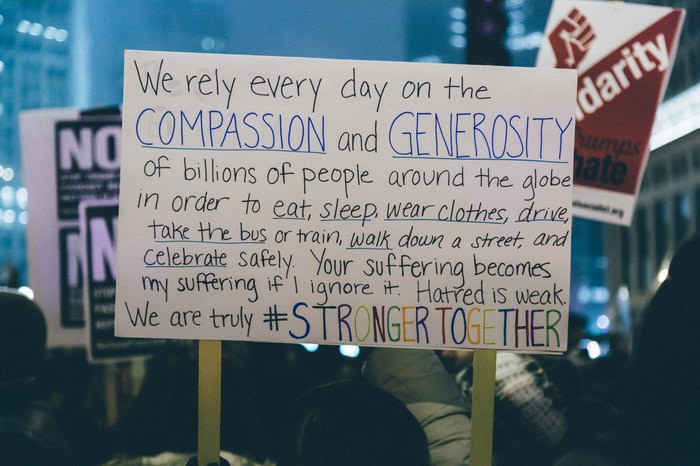 We rely every day on the
COMPASSION and GENEROSITY
of billions of people around the globe
in order to eat, sleep, wear clothes, drive,
take the bus or train, walk down a street, and
celebrate safely. Your suffering becomes
my suffering if I ignore it. Hatred is weak.
We are truly #STRONGERTOGETHER
NO
N
N
idarity
rumps
hate